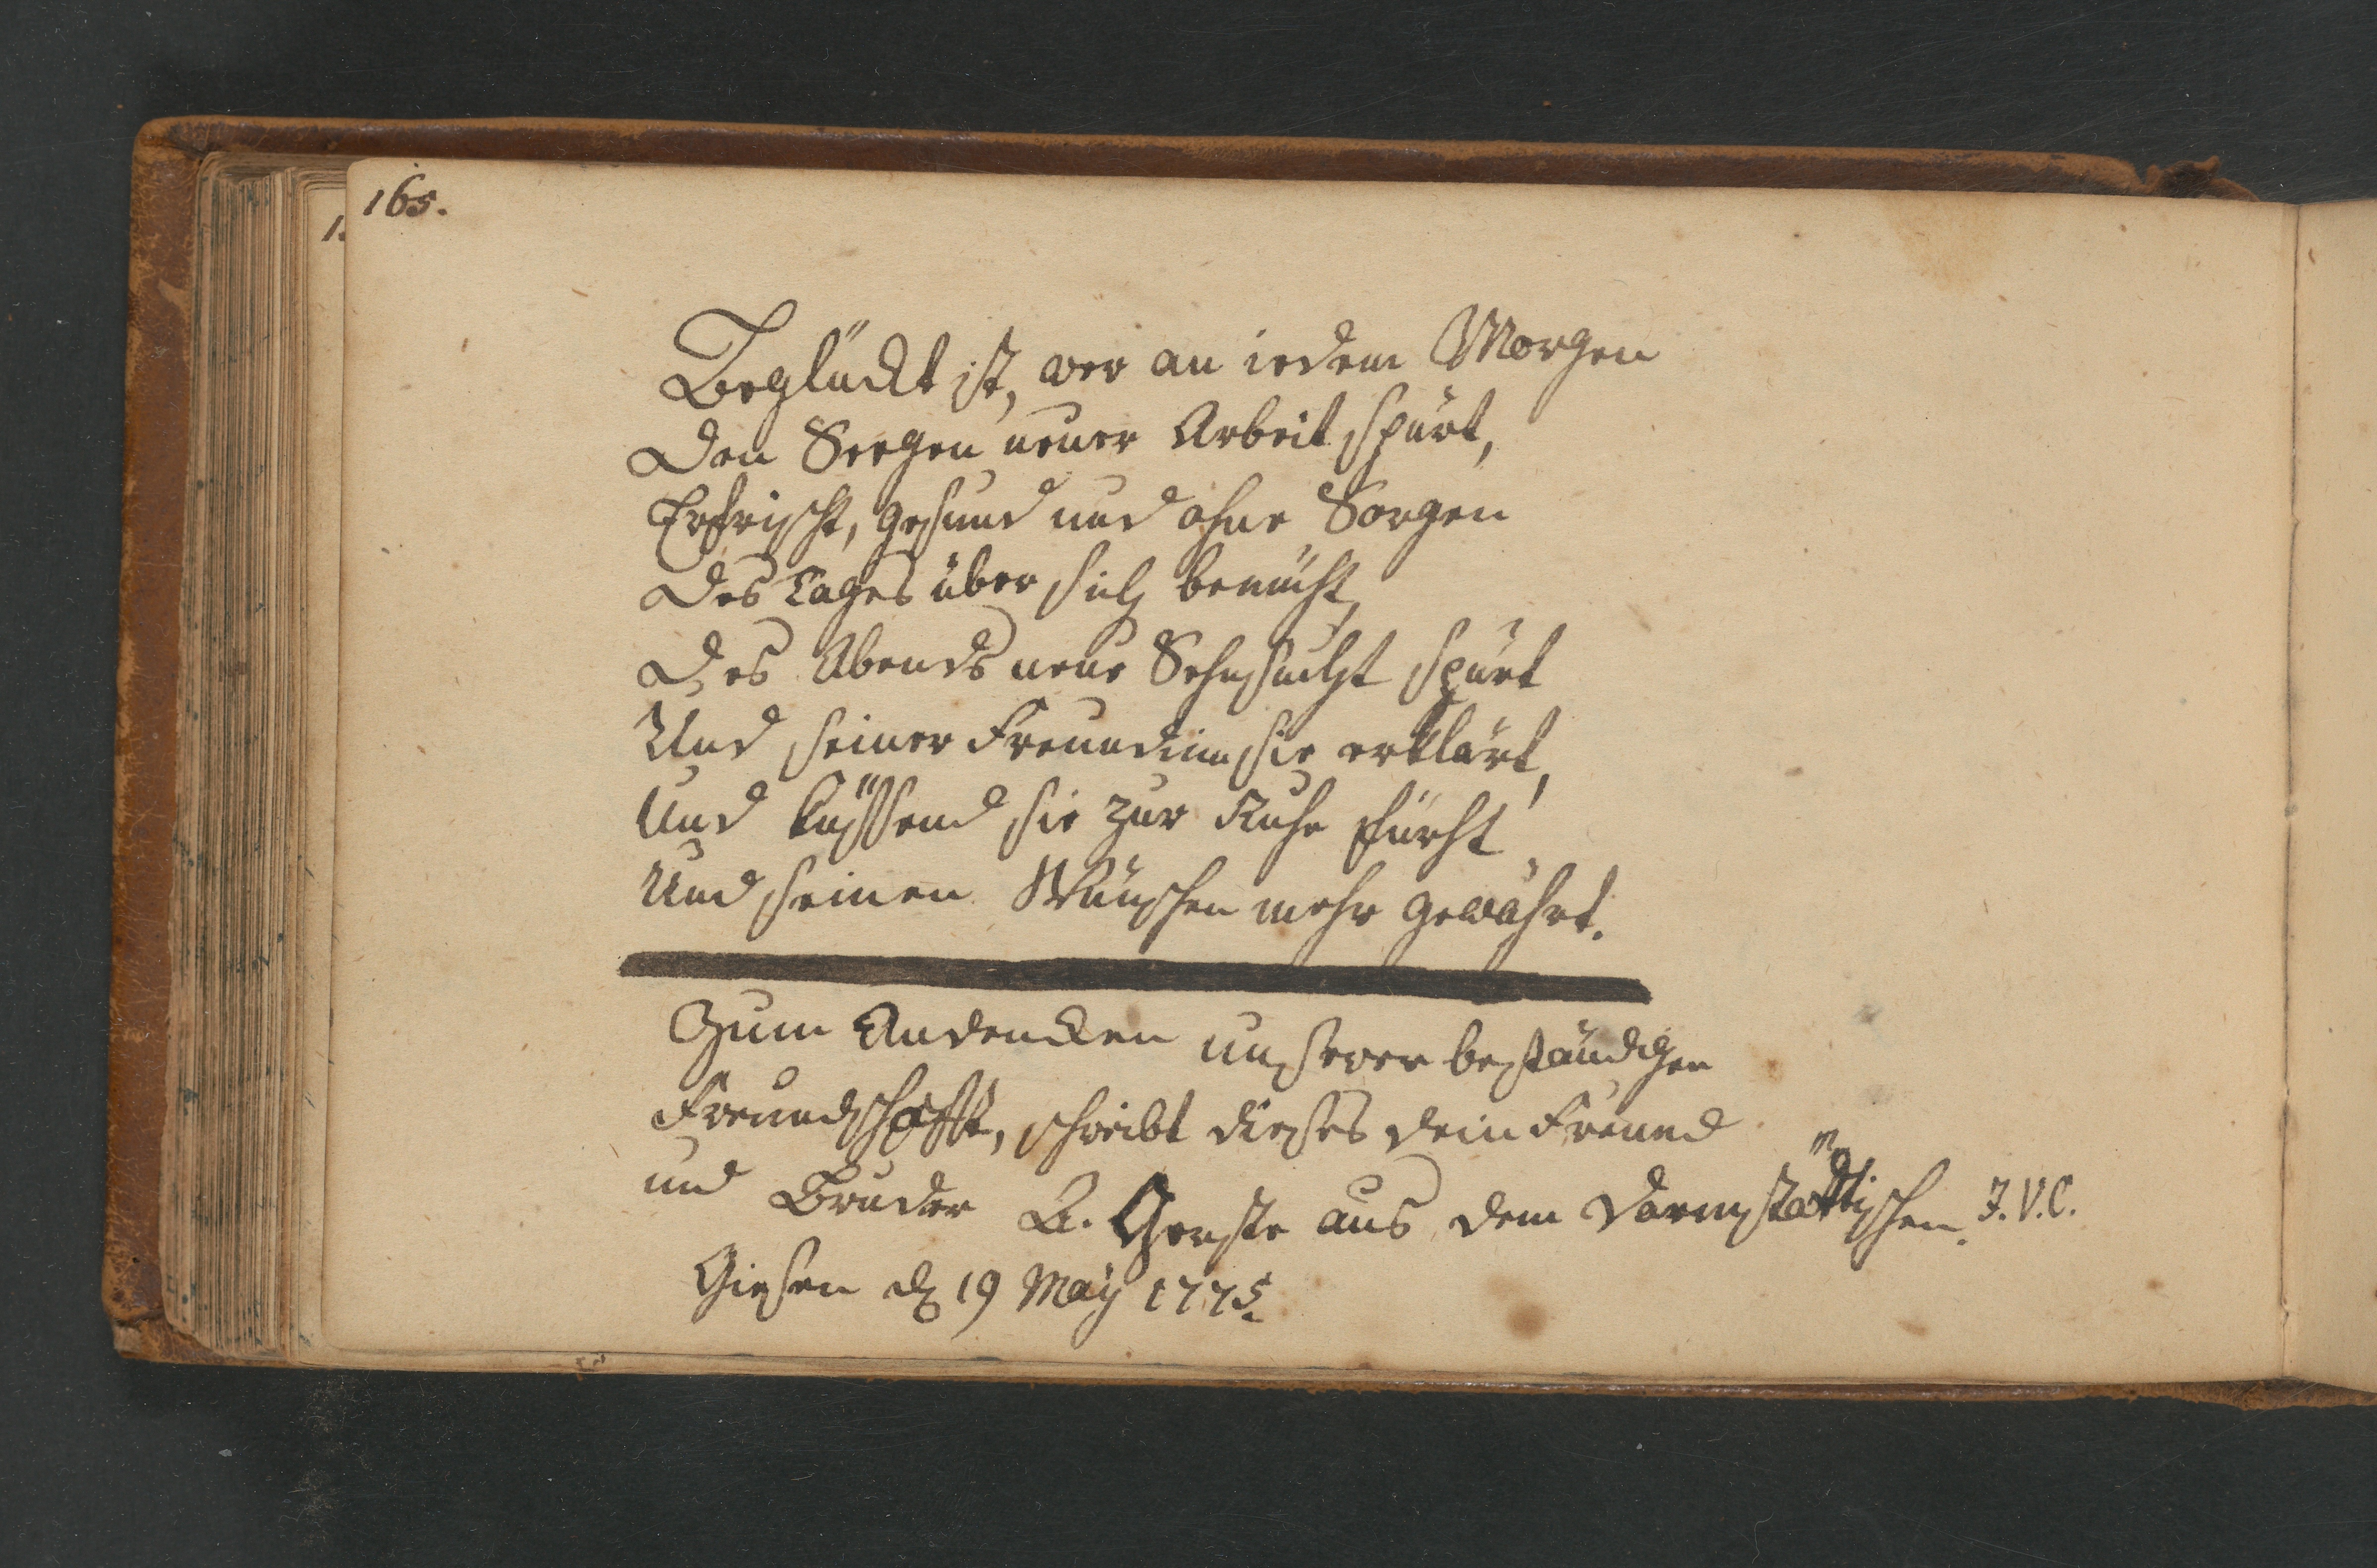 165.
Beglückt ist, wer an iedem Morgen
Den Seegen neuer Arbeit spürt,
Erfrischt, gesund und ohne Sorgen
Des Tages über sich bemüht,
Des Abends neue Sehnsucht spürt
Und seiner Freundinn sie erklärt,
Und küssend sie zur Ruhe führt
Und seinen Wünschen mehr gewährt.
Zum Andencken unserer beständigen
Freundschafft, schreibt dieses dein Freund
und Bruder L. Gerste aus dem Darmstättischen. J.V.C.
Giesen d 19 May 1775.